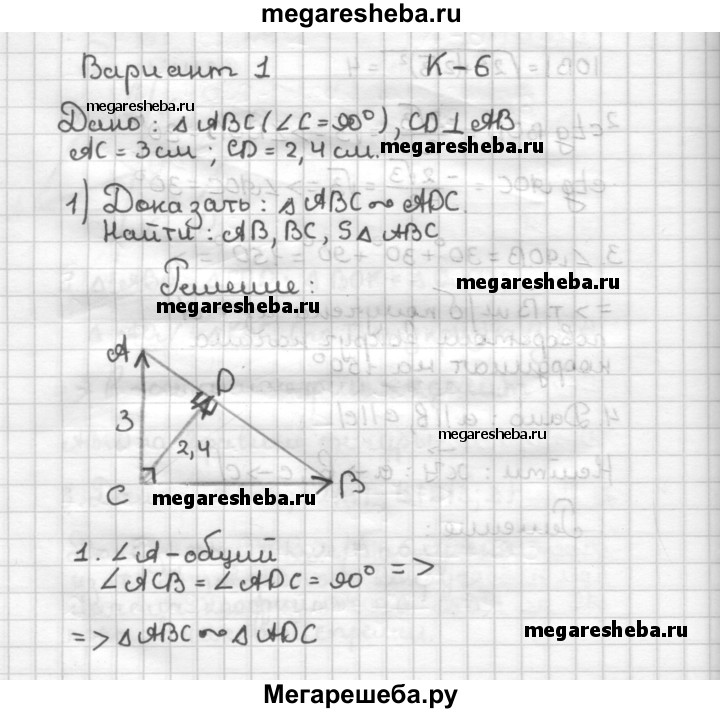 megaresheba.ru
Вариант 1 К-6
megaresheba.ru
Дано: △ABC (∠C=90°), CD⊥AB
AC = 3 см; CD = 2,4 см.
megaresheba.ru
1) Доказать: △ABC ~ ADC.
Найти: AB, BC, S△ABC
Решение:
megaresheba.ru
megaresheba.ru
A
D
3
2,4
megaresheba.ru
C
B
megaresheba.ru
1. ∠A - общий
∠ACB = ∠ADC = 90° =>
=> △ABC ~ △ADC
megaresheba.ru
Мегарешеба.ру